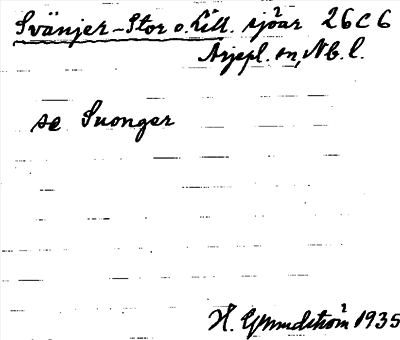 Svänjer-Stor o. Lill. sjöar 26C6
Arjepl. sn, Nb. l.
se Suonger
H. Grundström 1935